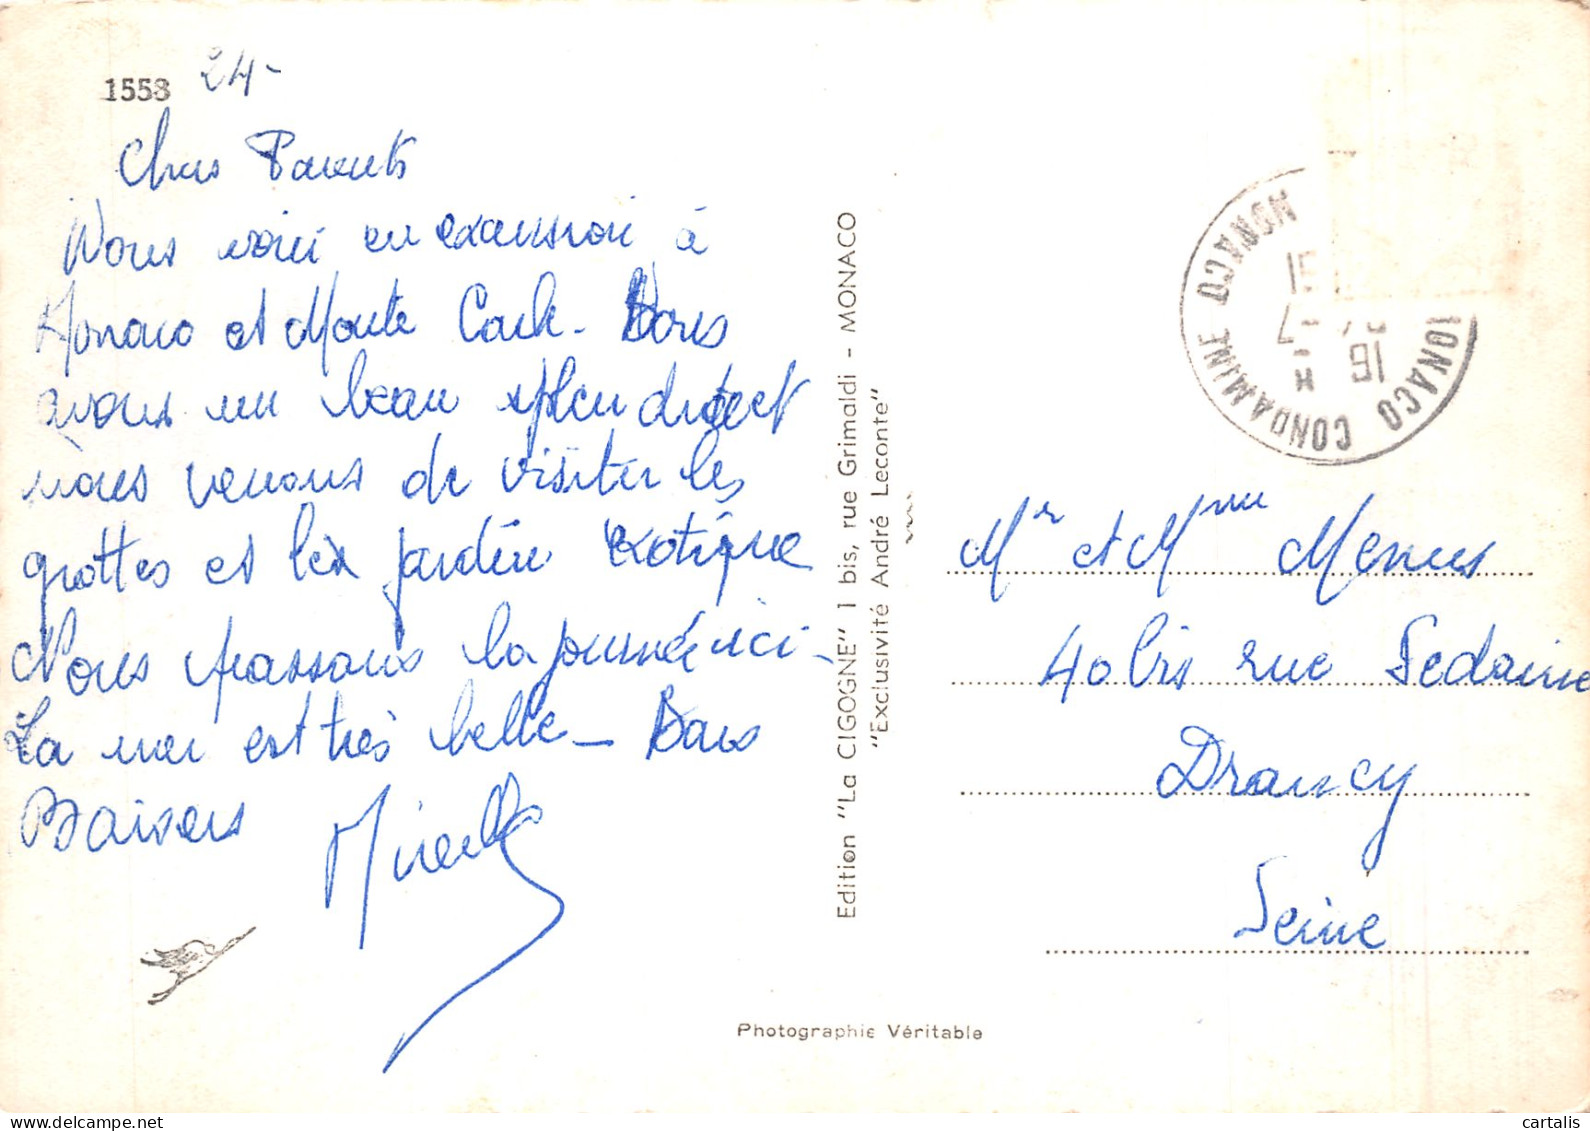 1558 24-
Chers Parents
Nous voici en excursion à
Monaco et Monte Carlo - Nous
avons un beau splendide et
nous venons de visiter les
grottes et le jardin exotique
Nous passons la journée ici -
La mer est très belle - Bons
Baisers
Mireille
Edition "La CIGOGNE" 1 bis, rue Grimaldi - MONACO
"Exclusivité André Leconte"
MONACO CONDAMINE
MONACO
16 H
Mr et Mme Menus
40 bis rue Sedaine
Drancy
Seine
Photographie Véritable
cartalis